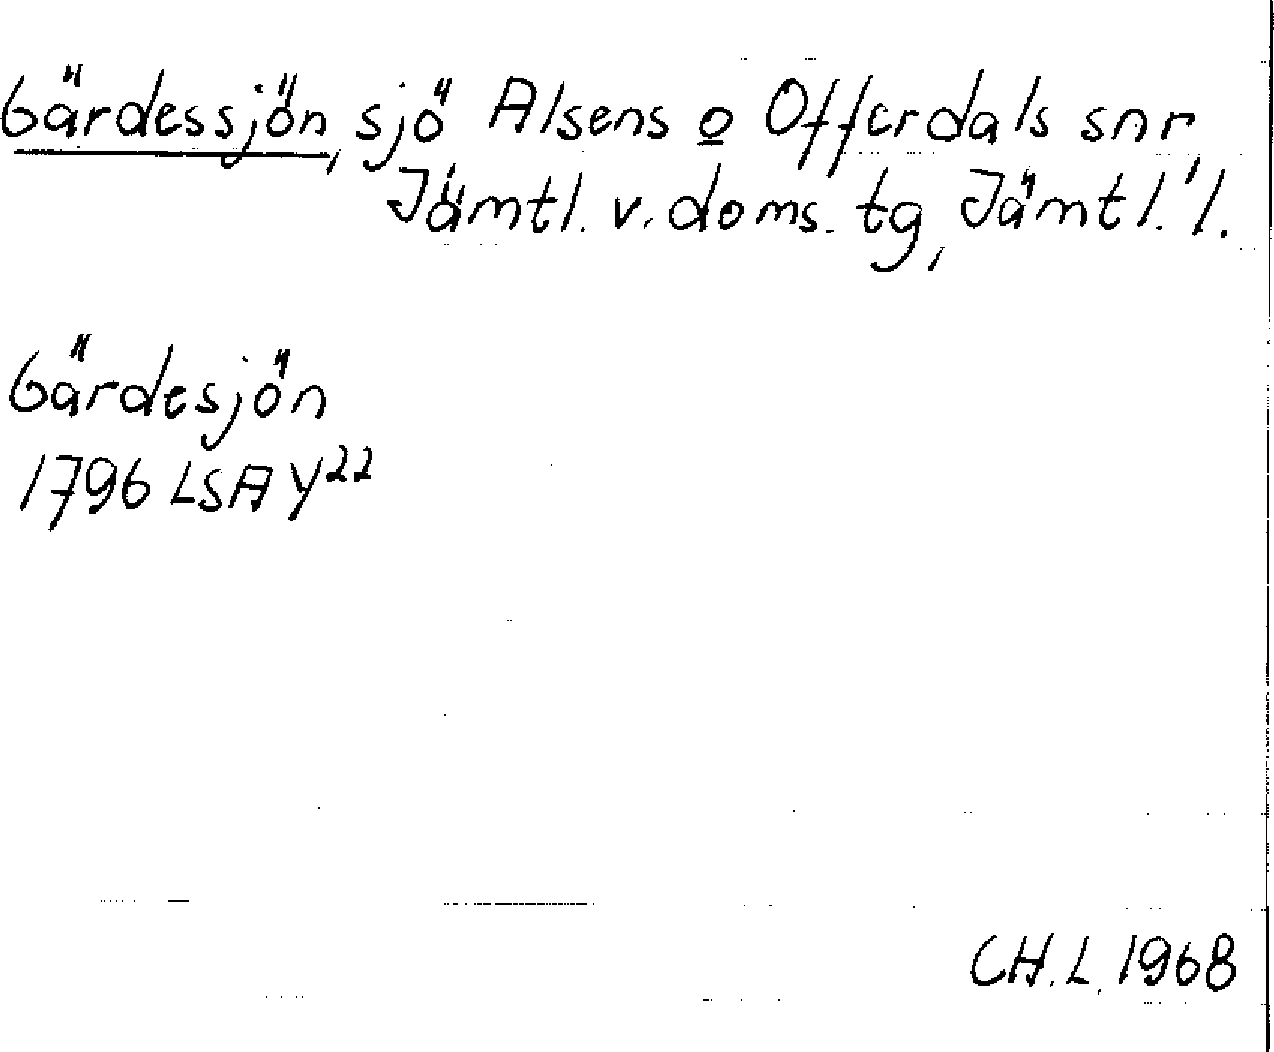 Gärdessjön, sjö Alsens o Offerdals snr,
Jämtl. v. doms. tg, Jämtl. l.
Gärdesjön
1796 LSA Y22
CH. L. 1968